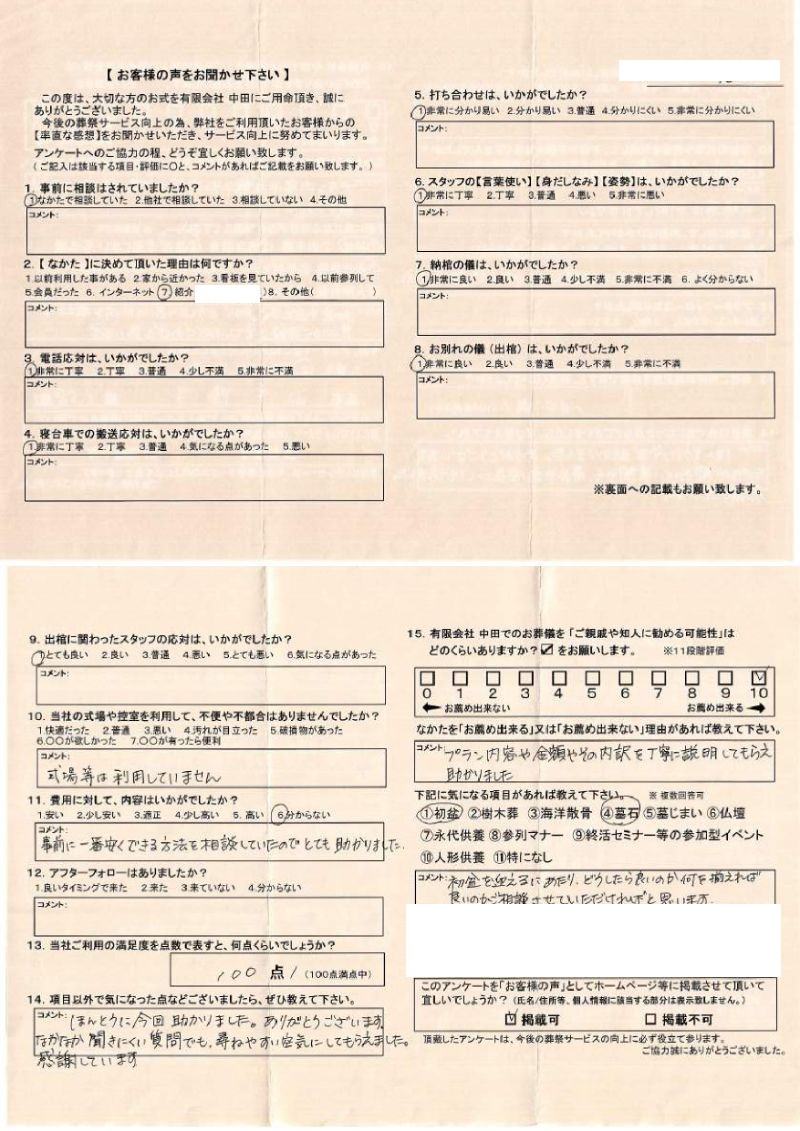 【 お客様の声をお聞かせ下さい 】
この度は、大切な方のお式を有限会社 中田にご用命頂き、誠に
ありがとうございました。
今後の葬祭サービス向上の為、弊社をご利用頂いたお客様からの
【率直な感想】をお聞かせいただき、サービス向上に努めてまいります。
アンケートへのご協力の程、どうぞ宜しくお願い致します。
(ご記入は該当する項目・評価に○と、コメントがあればご記載をお願い致します。)
1. 事前に相談はされていましたか?
1.なかたで相談していた 2.他社で相談していた 3.相談していない 4.その他
コメント:
2.【 なかた 】に決めて頂いた理由は何ですか?
1.以前利用した事がある 2.家から近かった 3.看板を見ていたから 4.以前参列して
5.会員だった 6. インターネット 7. 紹介 )8. その他( )
コメント:
3. 電話応対は、いかがでしたか?
1.非常に丁寧 2.丁寧 3.普通 4.少し不満 5.非常に不満
コメント:
4. 寝台車での搬送応対は、いかがでしたか?
1.非常に丁寧 2.丁寧 3.普通 4.気になる点があった 5.悪い
コメント:
5. 打ち合わせは、いかがでしたか?
1.非常に分かり易い 2.分かり易い 3.普通 4.分かりにくい 5.非常に分かりにくい
コメント:
6. スタッフの【言葉使い】【身だしなみ】【姿勢】は、いかがでしたか?
1.非常に丁寧 2.丁寧 3.普通 4.悪い 5.非常に悪い
コメント:
7. 納棺の儀は、いかがでしたか?
1.非常に良い 2.良い 3.普通 4.少し不満 5.非常に不満 6. よく分からない
コメント:
8. お別れの儀(出棺)は、いかがでしたか?
1.非常に良い 2.良い 3.普通 4.少し不満 5.非常に不満
コメント:
※裏面への記載もお願い致します。
9. 出棺に関わったスタッフの応対は、いかがでしたか?
1.とても良い 2.良い 3.普通 4.悪い 5.とても悪い 6.気になる点があった
コメント:
10. 当社の式場や控室を利用して、不便や不都合はありませんでしたか?
1.快適だった 2.普通 3.悪い 4.汚れが目立った 5.破損物があった
6.〇〇が欲しかった 7.〇〇が有ったら便利
コメント:
式場等は利用していません
11. 費用に対して、内容はいかがでしたか?
1.安い 2.少し安い 3.適正 4.少し高い 5. 高い 6.分からない
コメント:
事前に一番安くできる方法を相談していたのでとても助かりました.
12. アフターフォローはありましたか?
1.良いタイミングで来た 2.来た 3.来ていない 4.分からない
コメント:
13. 当社ご利用の満足度を点数で表すと、何点くらいでしょうか?
100 点 (100点満点中)
14. 項目以外で気になった点などございましたら、ぜひ教えて下さい。
コメント: ほんとうに今回助かりました。ありがとうございます
なかなか聞きにくい質問でも、尋ねやすい空気にしてもらえました。
感謝しています
15. 有限会社 中田でのお葬儀を「ご親戚や知人に勧める可能性」は
どのくらいありますか?☑をお願いします。 ※11段階評価
0 1 2 3 4 5 6 7 8 9 10
お薦め出来ない お薦め出来る
なかたを「お薦め出来る」又は「お薦め出来ない」理由があれば教えて下さい。
コメント: プラン内容や金額やその内訳を丁寧に説明してもらえ
助かりました
下記に気になる項目があれば教えて下さい。 ※ 複数回答可
①初盆 ②樹木葬 ③海洋散骨 ④墓石 ⑤墓じまい ⑥仏壇
⑦永代供養 ⑧参列マナー ⑨終活セミナー等の参加型イベント
⑩人形供養 ⑪特になし
コメント: 初盆を迎えるにあたり、どうしたら良いのか何を揃えれば
良いのかご相談させていただければと思います.
このアンケートを「お客様の声」としてホームページ等に掲載させて頂いて
宜しいでしょうか?(氏名/住所等、個人情報に該当する部分は表示致しません。)
☑ 掲載可 □ 掲載不可
頂戴したアンケートは、今後の葬祭サービスの向上に必ず役立て参ります。
ご協力誠にありがとうございました。